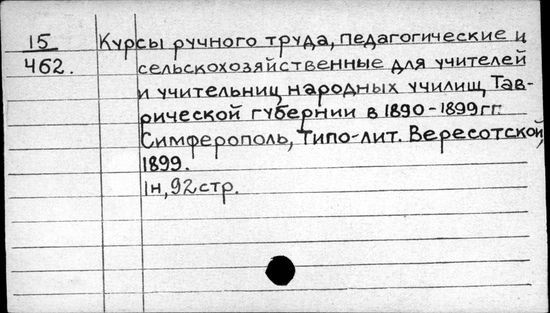 15 Курсы ручного труда, педагогические и
462. сельскохозяйственные для учителей
и учительниц народных училищ Тав-
рической губернии в 1890-1899гг.
Симферополь, Типо-лит. Вересотской,
1899.
1н, 92стр.